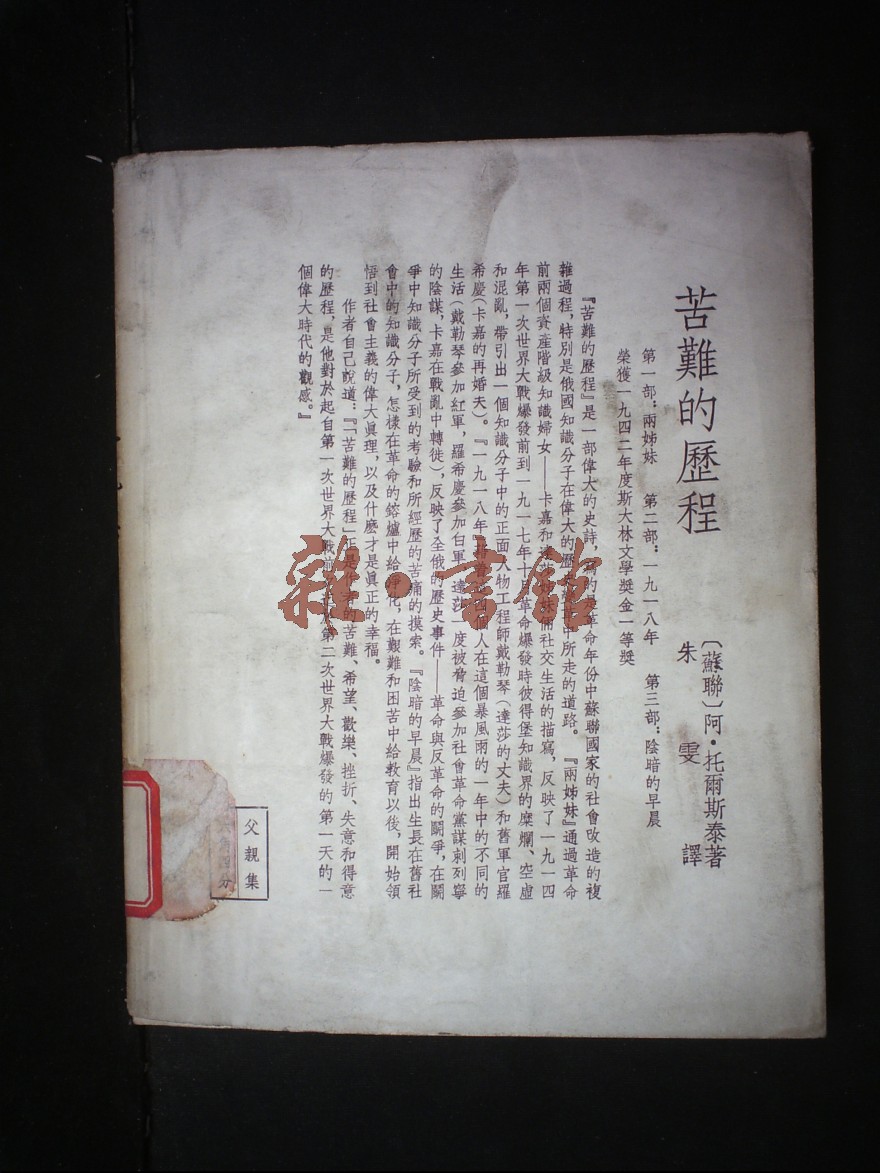 苦難的歷程
〔蘇聯〕阿·托爾斯泰著
朱雯譯
第一部：兩姊妹　第二部：一九一八年　第三部：陰暗的早晨
榮獲一九四二年度斯大林文學獎金一等獎
『苦難的歷程』是一部偉大的史詩，寫的是革命年份中蘇聯國家的社會改造的複
雜過程，特別是俄國知識分子在偉大的歷史中所走的道路。『兩姊妹』通過革命
前兩個資產階級知識婦女——卡嘉和達莎姊妹倆社交生活的描寫，反映了一九一四
年第一次世界大戰爆發前到一九一七年十月革命爆發時彼得堡知識界的糜爛、空虛
和混亂，帶引出一個知識分子中的正面人物工程師戴勒琴（達莎的丈夫）和舊軍官羅
希慶（卡嘉的再婚夫）。『一九一八年』四個人在這個暴風雨的一年中的不同的
生活（戴勒琴參加紅軍，羅希慶參加白軍，達莎一度被脅迫參加社會革命黨謀刺列寧
的陰謀，卡嘉在戰亂中轉徙），反映了全俄的歷史事件——革命與反革命的鬬爭，在鬬
爭中知識分子所受到的考驗和所經歷的苦痛的摸索。『陰暗的早晨』指出生長在舊社
會中的知識分子，怎樣在革命的鎔爐中給淨化，在艱難和困苦中給教育以後，開始領
悟到社會主義的偉大眞理，以及什麼才是眞正的幸福。
作者自己說道：『「苦難的歷程」正是作者的苦難、希望、歡樂、挫折、失意和得意
的歷程，是他對於起自第一次世界大戰前第二次世界大戰爆發的第一天的一
個偉大時代的觀感。』
父親集
雜·書館